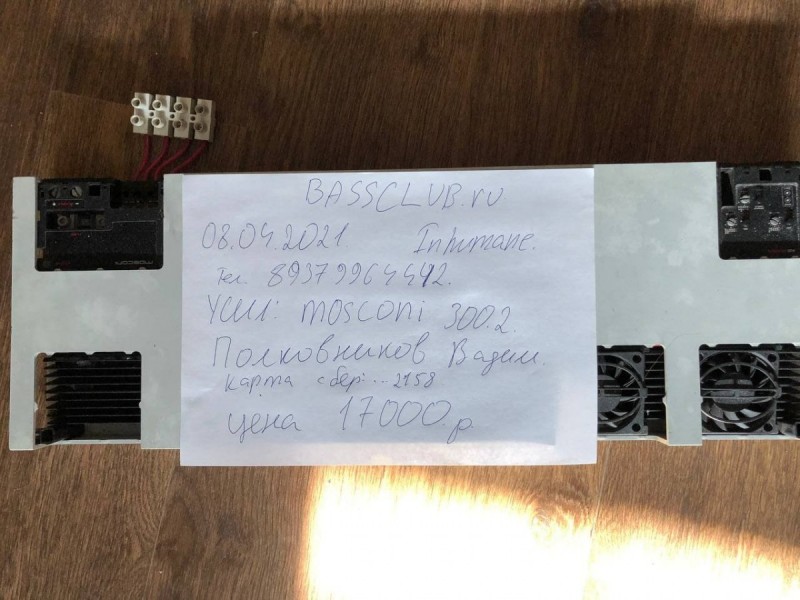 BASSCLUB.ru
08.04.2021 Inhumane.
Тел. 89379964442.
Усил: mosconi 300.2.
Полковников Вадим.
карта сбер: ..2158
цена 17000.р